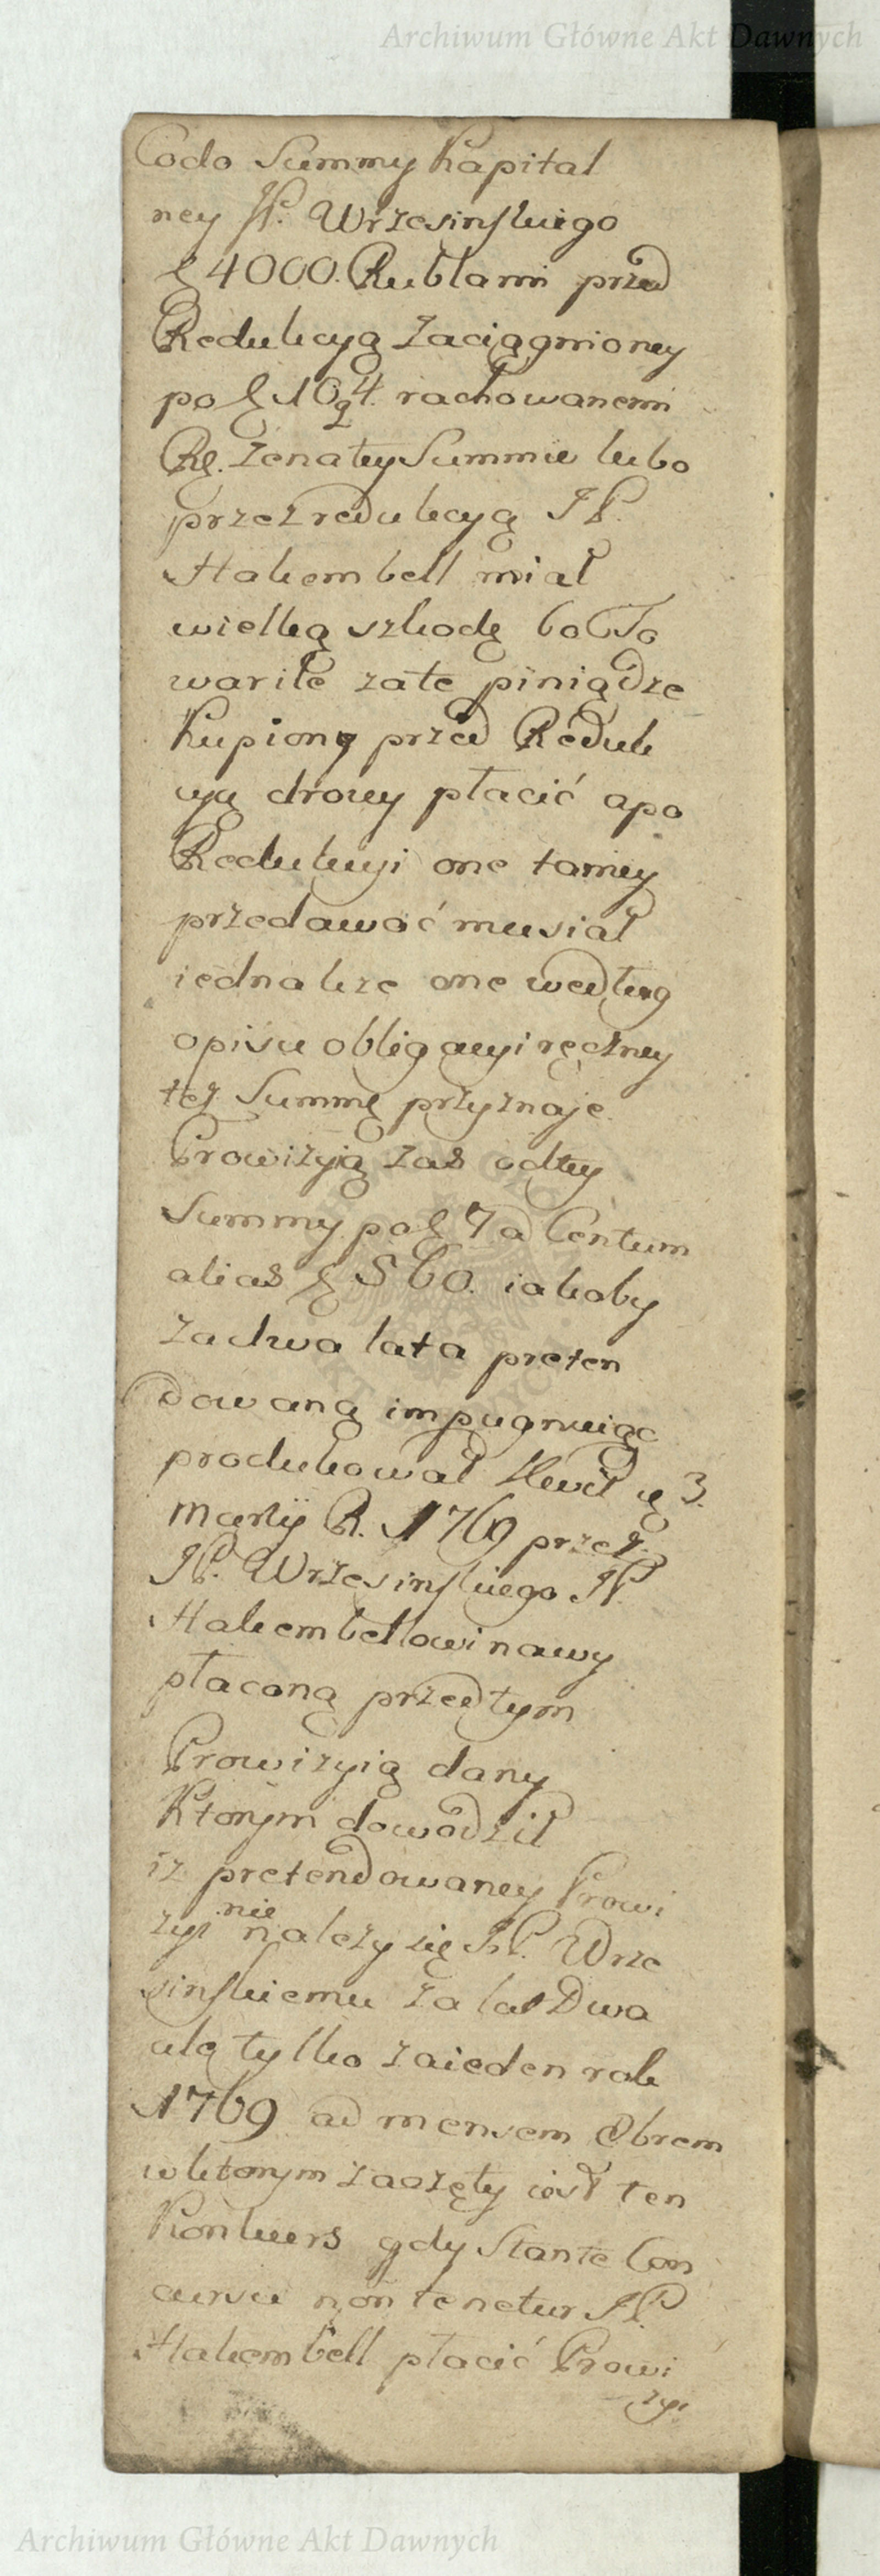 Archiwum Główne Akt Dawnych
Codo Summy Kapital
ney JP. Wrzesinskiego
ƶ 4000. Rublami przed
Redukcyą zaciągnioney
po ƶ 10 g 4. rachowanemi
Rƶ. że na tey Summie lubo
przez redukcyą JP.
Hakembell miał
wielką szkodę bo To
wariłe zate piniądze
kupiony przed Reduk
cyą drozey płacić apo
Redukcyi one taniey
przedawać musiał
iednakze one według
opisu obligacyi ręczney
tez Summę przyznaje.
Prowizyią zas odtey
Summy po ƶ 7 a Centum
alias ƶ 560. iakoby
za dwa lata preten
dowaną impugnuiąc
produkował Kwit ę 3.
Martij R. 1769 przez
JP. Wrzesinskiego JP.
Hakembellowi nawy
płaconą przedtym
Prowizyią dany
Ktorym dowodził
iz pretendowaney Prowi
zyi nie należy się JP. Wrze
sinskiemu za lat Dwa
ale tylko zaieden rok
1769 ad mensem Obrem
w ktorym zaczęty iest ten
Konkurs gdy Stante Con
cursu non tenetur JP.
Hakembell płacić Prowi
zyi
Archiwum Główne Akt Dawnych